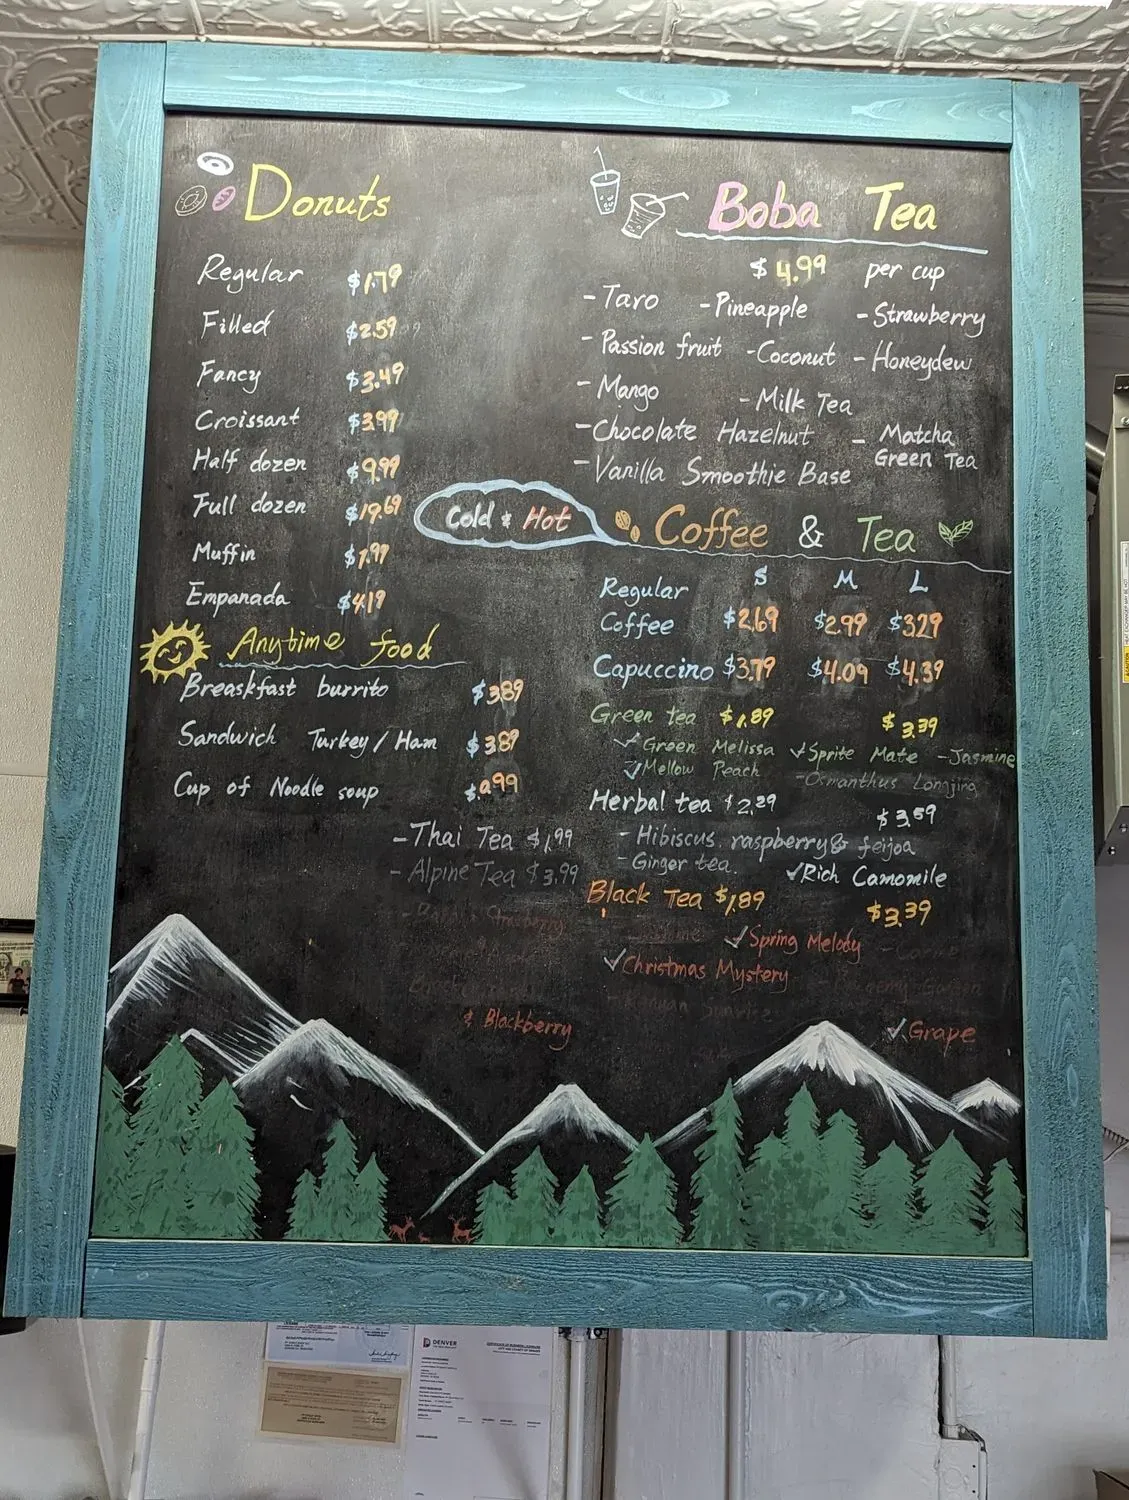 Donuts
Regular $1.79
Filled $2.59
Fancy $3.49
Croissant $3.99
Half dozen $9.99
Full dozen $19.69
Muffin $1.99
Empanada $4.19
Anytime food
Breaskfast burrito $3.89
Sandwich Turkey/Ham $3.89
Cup of Noodle soup
Boba Tea
$4.99 per cup
-Taro -Pineapple -Strawberry
-Passion fruit -Coconut -Honeydew
-Mango -Milk Tea
-Chocolate Hazelnut -Matcha Green Tea
-Vanilla Smoothie Base
Cold & Hot
Coffee & Tea
S M L
Regular Coffee $2.69 $2.99 $3.29
Capuccino $3.79 $4.09 $4.39
Green tea $1.89 $3.39
✓Green Melissa ✓Sprite Mate -Jasmine
✓Mellow Peach -Osmanthus Longjing
Herbal tea $2.29 $3.59
-Hibiscus, raspberry & feijoa
-Ginger tea. ✓Rich Camomile
Black Tea $1.89 $3.39
✓Spring Melody
✓Christmas Mystery
✓Grape
-Thai Tea $1.99
-Alpine Tea $3.99
& Blackberry
DENVER